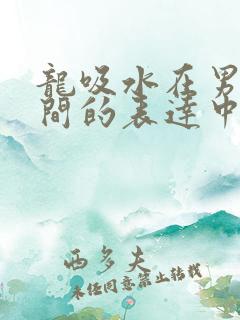 龍吸水在男
間的表達中
西多夫
未經同意禁止轉載